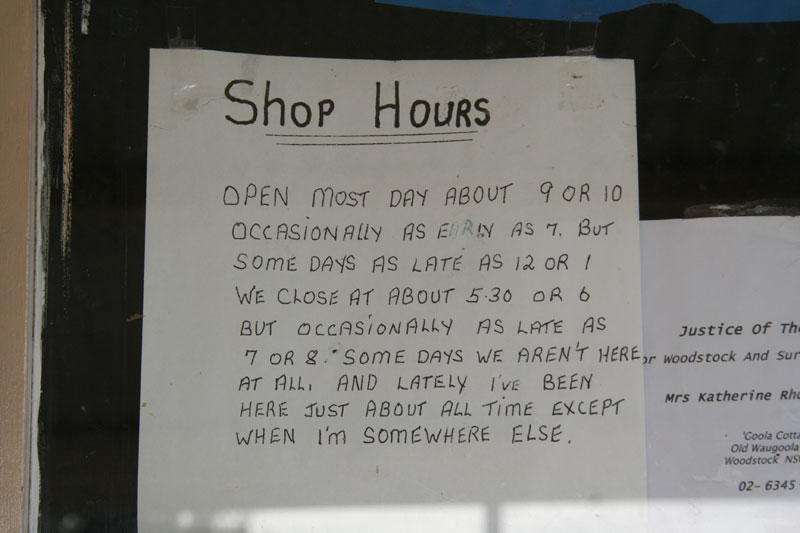 Shop Hours
OPEN MOST DAY ABOUT 9 OR 10
OCCASIONALLY AS EARLY AS 7. BUT
SOME DAYS AS LATE AS 12 OR 1
WE CLOSE AT ABOUT 5.30 OR 6
BUT OCCASIONALLY AS LATE AS
7 OR 8. SOME DAYS WE AREN'T HERE
AT ALL, AND LATELY I'VE BEEN
HERE JUST ABOUT ALL TIME EXCEPT
WHEN I'M SOMEWHERE ELSE.
Justice Of The
or Woodstock And Sur
Mrs Katherine Rho
'Goola Cotta
Old Waugoola
Woodstock NS
02- 6345